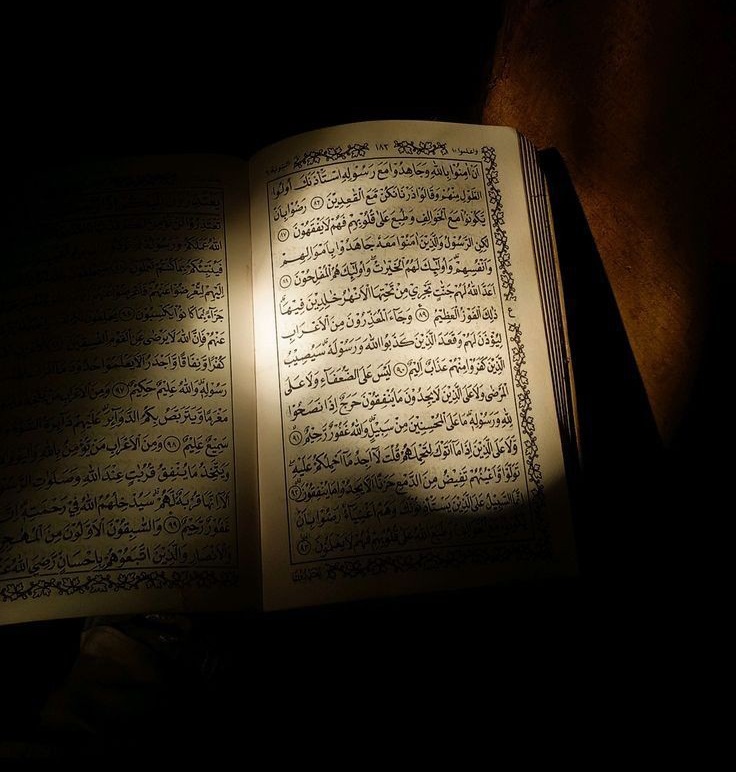 واعلموا ١٠ ١٨٣ التوبة ٩
اَنْ اٰمِنُوْا بِاللّٰهِ وَجَاهِدُوْا مَعَ رَسُوْلِهِ اسْتَاْذَنَكَ اُولُوا
الطَّوْلِ مِنْهُمْ وَقَالُوْا ذَرْنَا نَكُنْ مَّعَ الْقٰعِدِيْنَ ﴿٨٦﴾ رَضُوْا بِاَنْ
يَّكُوْنُوْا مَعَ الْخَوَالِفِ وَطُبِعَ عَلٰى قُلُوْبِهِمْ فَهُمْ لَا يَفْقَهُوْنَ ﴿٨٧﴾
لٰكِنِ الرَّسُوْلُ وَالَّذِيْنَ اٰمَنُوْا مَعَهٗ جَاهَدُوْا بِاَمْوَالِهِمْ
وَاَنْفُسِهِمْ وَاُولٰٓئِكَ لَهُمُ الْخَيْرٰتُ وَاُولٰٓئِكَ هُمُ الْمُفْلِحُوْنَ ﴿٨٨﴾
اَعَدَّ اللّٰهُ لَهُمْ جَنّٰتٍ تَجْرِيْ مِنْ تَحْتِهَا الْاَنْهٰرُ خٰلِدِيْنَ فِيْهَا
ذٰلِكَ الْفَوْزُ الْعَظِيْمُ ﴿٨٩﴾ وَجَآءَ الْمُعَذِّرُوْنَ مِنَ الْاَعْرَابِ
لِيُؤْذَنَ لَهُمْ وَقَعَدَ الَّذِيْنَ كَذَبُوا اللّٰهَ وَرَسُوْلَهٗ سَيُصِيْبُ
الَّذِيْنَ كَفَرُوْا مِنْهُمْ عَذَابٌ اَلِيْمٌ ﴿٩٠﴾ لَيْسَ عَلَى الضُّعَفَآءِ وَلَا عَلَى
الْمَرْضٰى وَلَا عَلَى الَّذِيْنَ لَا يَجِدُوْنَ مَا يُنْفِقُوْنَ حَرَجٌ اِذَا نَصَحُوْا
لِلّٰهِ وَرَسُوْلِهٖ مَا عَلَى الْمُحْسِنِيْنَ مِنْ سَبِيْلٍ وَاللّٰهُ غَفُوْرٌ رَّحِيْمٌ ﴿٩١﴾
وَّلَا عَلَى الَّذِيْنَ اِذَا مَآ اَتَوْكَ لِتَحْمِلَهُمْ قُلْتَ لَآ اَجِدُ مَآ اَحْمِلُكُمْ عَلَيْهِ
تَوَلَّوْا وَّاَعْيُنُهُمْ تَفِيْضُ مِنَ الدَّمْعِ حَزَنًا اَلَّا يَجِدُوْا مَا يُنْفِقُوْنَ ﴿٩٢﴾
اِنَّمَا السَّبِيْلُ عَلَى الَّذِيْنَ يَسْتَاْذِنُوْنَكَ وَهُمْ اَغْنِيَآءُ رَضُوْا بِاَنْ
وَطَبَعَ اللّٰهُ عَلٰى قُلُوْبِهِمْ فَهُمْ لَا يَعْلَمُوْنَ ﴿٩٣﴾
فَيُنَبِّئُكُمْ بِمَا كُنْتُمْ تَعْمَلُوْنَ
جَزَآءً بِمَا كَانُوْا يَكْسِبُوْنَ
عَنْهُمْ فَاِنَّ اللّٰهَ لَا يَرْضٰى عَنِ الْقَوْمِ
كُفْرًا وَّنِفَاقًا وَّاَجْدَرُ اَلَّا يَعْلَمُوْا حُدُوْدَ مَآ
رَسُوْلِهٖ وَاللّٰهُ عَلِيْمٌ حَكِيْمٌ ﴿٩٧﴾ وَمِنَ الْاَعْرَابِ
مَغْرَمًا وَّيَتَرَبَّصُ بِكُمُ الدَّوَآئِرَ عَلَيْهِمْ دَآئِرَةُ
سَمِيْعٌ عَلِيْمٌ ﴿٩٨﴾ وَمِنَ الْاَعْرَابِ مَنْ يُّؤْمِنُ بِاللّٰهِ
وَيَتَّخِذُ مَا يُنْفِقُ قُرُبٰتٍ عِنْدَ اللّٰهِ وَصَلَوٰتِ
اَلَآ اِنَّهَا قُرْبَةٌ لَّهُمْ سَيُدْخِلُهُمُ اللّٰهُ فِيْ رَحْمَتِهٖ
غَفُوْرٌ رَّحِيْمٌ ﴿٩٩﴾ وَالسّٰبِقُوْنَ الْاَوَّلُوْنَ مِنَ
وَالْاَنْصَارِ وَالَّذِيْنَ اتَّبَعُوْهُمْ بِاِحْسَانٍ رَّضِيَ اللّٰهُ